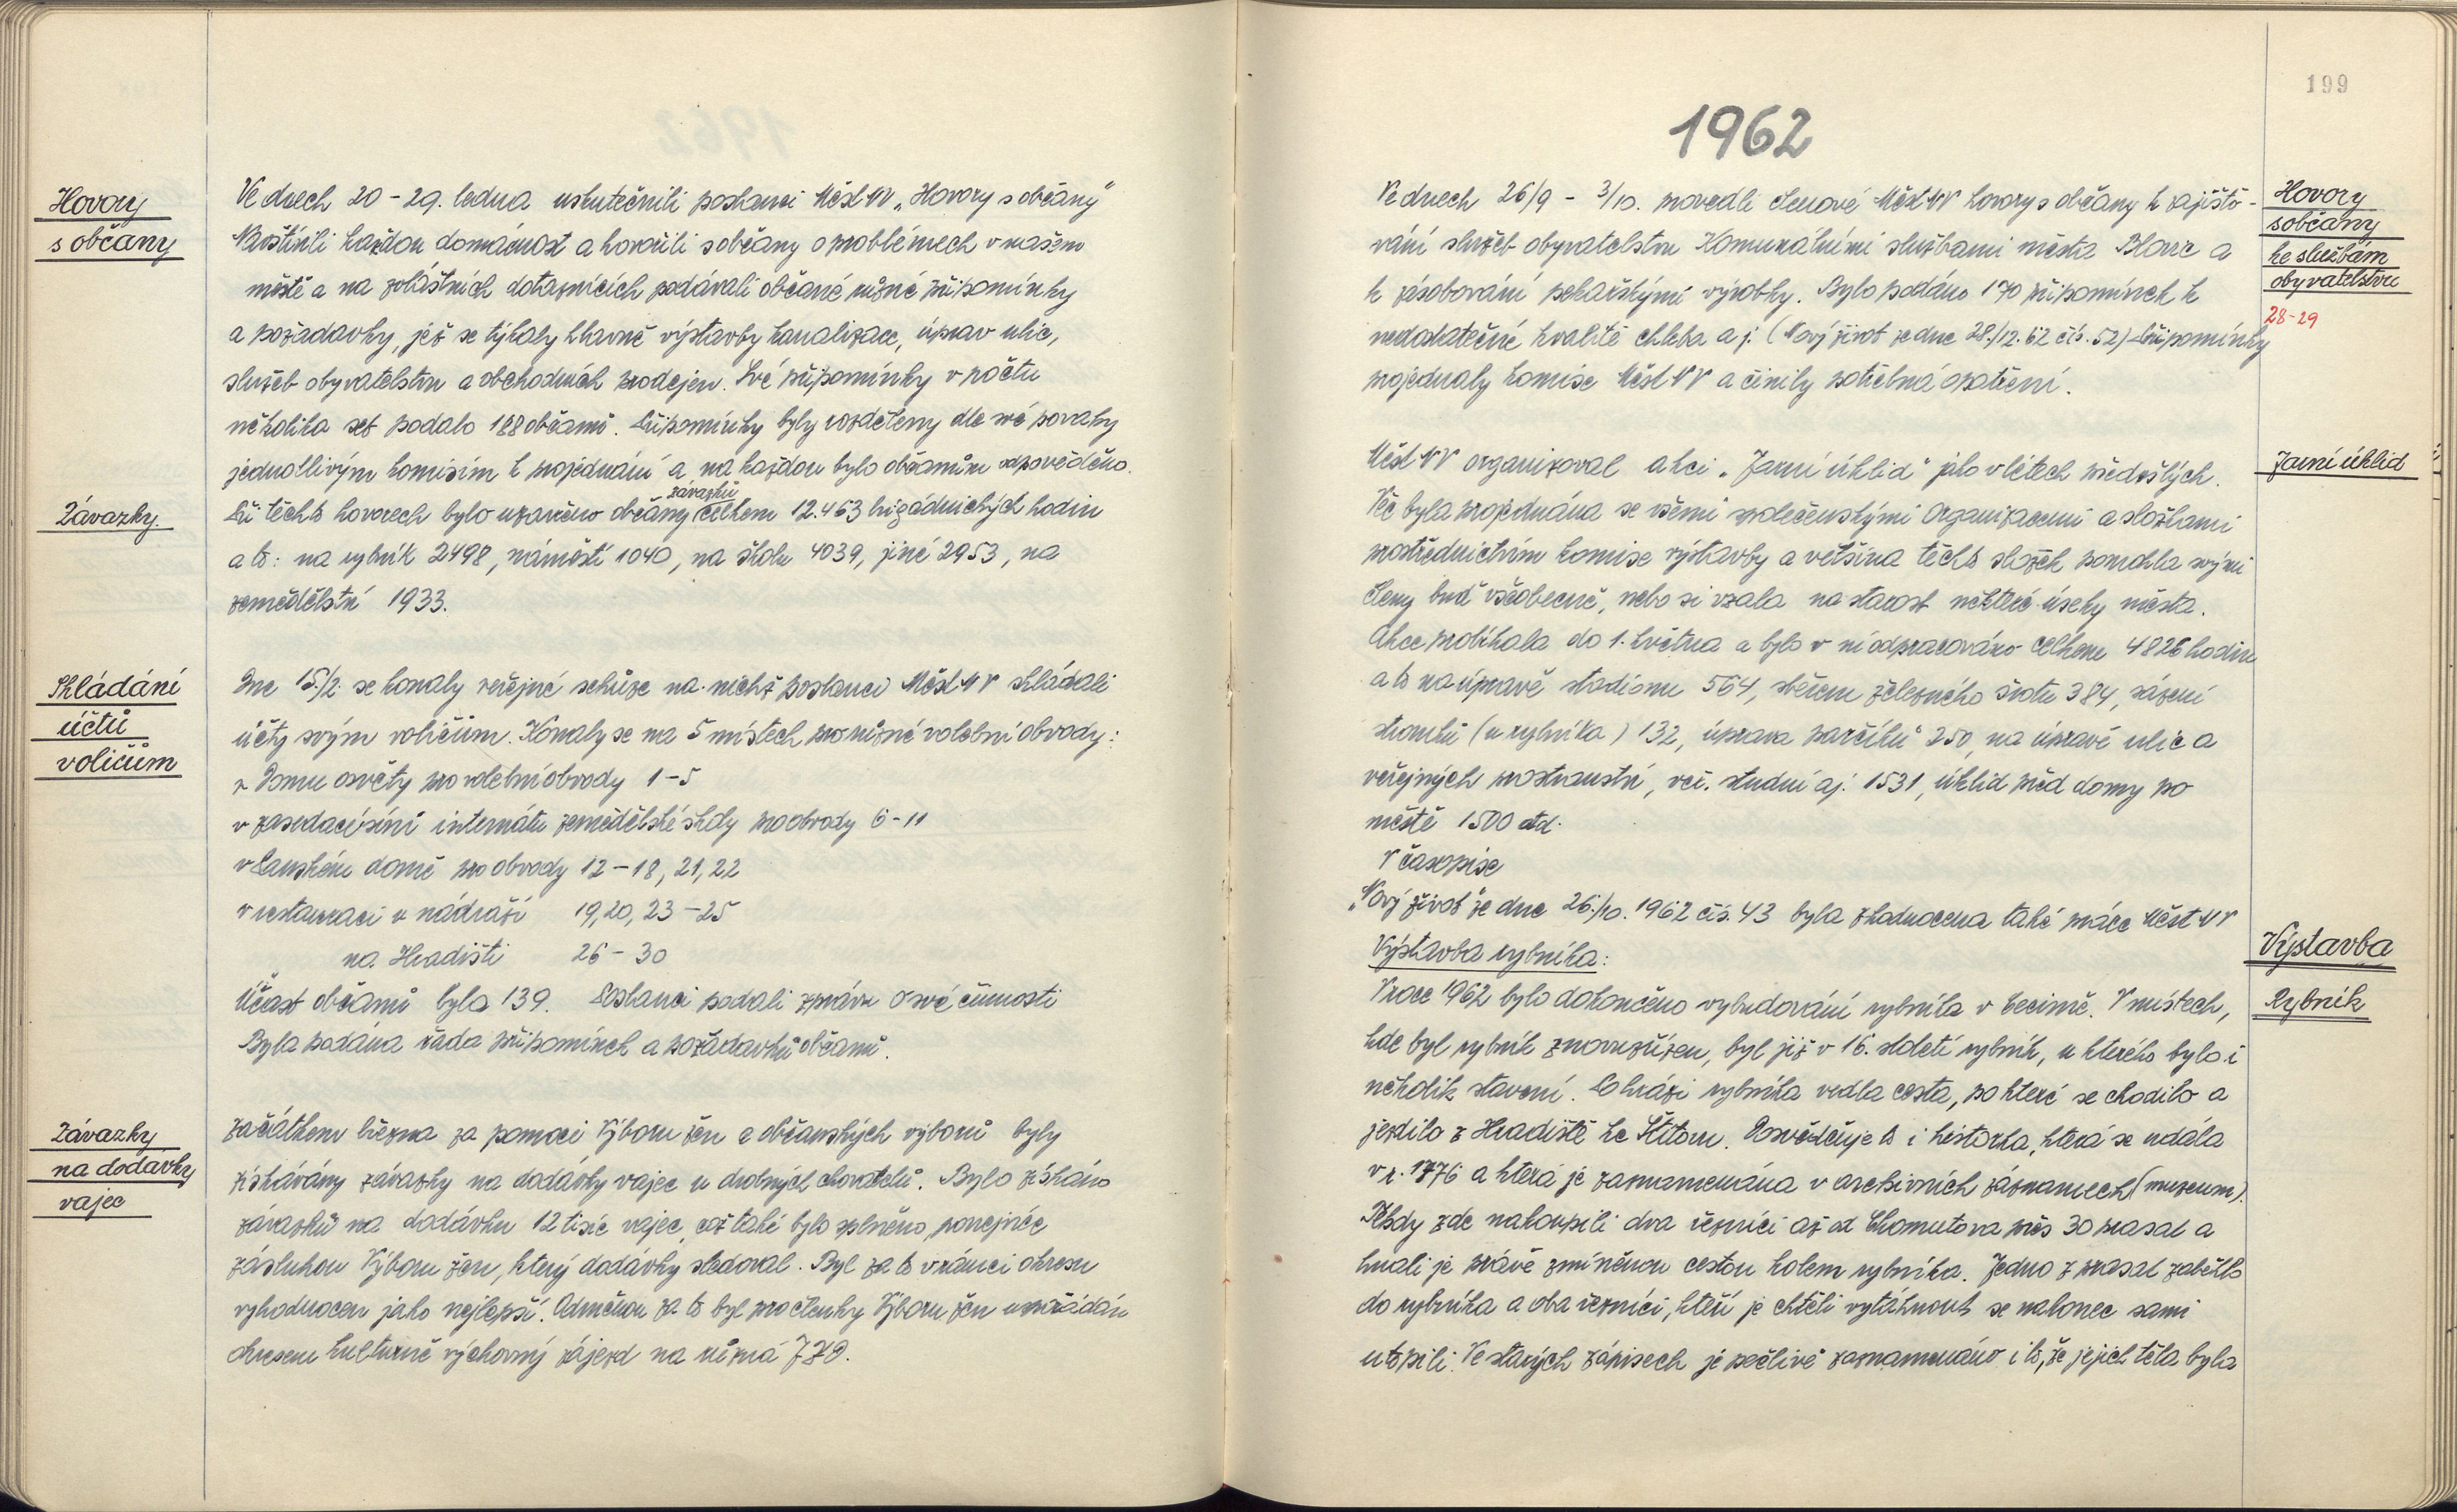 Hovory
s občany
Ve dnech 20 - 29. ledna uskutečnili poslanci MěstNV „Hovory s občany"
Navštívili každou domácnost a hovořili s občany o problémech v našem
městě a na zvláštních dotaznících podávali občané různé připomínky
a požadavky, jež se týkaly hlavně výstavby kanalizace, úprav ulic,
služeb obyvatelstvu a obchodních prodejen. Své připomínky v počtu
několika set podalo 188 občanů. Připomínky byly rozděleny dle své povahy
jednotlivým komisím k projednání a na každou bylo občanům odpověděno.
Závazky.
závazků
Při těchto hovorech bylo uzavřeno občany celkem 12.463 brigádnických hodin
a to: na rybník 2498, náměstí 1040, na školu 4039, jiné 2953, na
zemědělství 1933.
Skládání
účtů
voličům
Dne 15./2. se konaly veřejné schůze na nichž poslanci MěstNV skládali
účty svým voličům. Konaly se na 5 místech pro různé volební obvody:
v Domu osvěty pro volební obvody 1-5
v zasedací síni internátu zemědělské školy pro obvody 6-11
v Panském domě pro obvody 12-18, 21, 22
v restauraci u nádraží 19, 20, 23-25
na Hradišti 26-30
Účast občanů byla 139. Poslanci podali zprávu o své činnosti
Byla podána řada připomínek a požadavků občanů.
Závazky
na dodávky
vajec
Začátkem března za pomoci Výboru žen a občanských výborů byly
získávány závazky na dodávky vajec u drobných chovatelů. Bylo získáno
závazků na dodávku 12 tisíc vajec, což také bylo splněno, ponejvíce
zásluhou Výboru žen, který dodávky sledoval. Byl za to v rámci okresu
vyhodnocen jako nejlepší. Odměnou za to byl pro členky Výboru žen uspořádán
okresem kulturně výchovný zájezd na různá JZD.
199
1962
Hovory
s občany
ke službám
obyvatelstvu
28-29
Ve dnech 26/9 - 3/10. provedli členové MěstNV hovory s občany k zajišto-
vání služeb obyvatelstvu Komunálními službami města Blovic a
k zásobování pekařskými výrobky. Bylo podáno 170 připomínek k
nedostatečné kvalitě chleba a j. (Nový život ze dne 28./12. 62 čís. 52) Připomínky
projednaly komise MěstNV a činily potřebná opatření.
Jarní úklid
MěstNV organizoval akci „Jarní úklid" jako v létech předešlých.
Věc byla projednána se všemi společenskými organizacemi a složkami
prostřednictvím komise výstavby a většina těchto složek pomohla svými
členy buď všeobecně, nebo si vzala na starost některé úseky města.
Akce probíhala do 1. května a bylo v ní odpracováno celkem 4826 hodin
a to na úpravě stadionu 564, sběrem železného šrotu 384, sázení
stromků (u rybníka) 132, úprava parčíků 250, na úpravě ulic a
veřejných prostranství, vč. studní aj. 1531, úklid před domy po
městě 1500 atd.
V časopise
„Nový život" ze dne 26./10. 1962 čís. 43 byla zhodnocena také práce MěstNV
Výstavba
Výstavba rybníka:
Rybník
V roce 1962 bylo dokončeno vybudování rybníka v Cecimě. V místech,
kde byl rybník znovuzřízen, byl již v 16. století rybník, u kterého bylo i
několik stavení. Po hrázi rybníka vedla cesta, po které se chodilo a
jezdilo z Hradiště ke Štítovu. Dosvědčuje to i historka, která se udála
v r. 1776 a která je zaznamenána v archivních záznamech (muzeum).
Tehdy zde nakoupili dva řezníci až od Chomutova přes 30 prasat a
hnali je právě zmíněnou cestou kolem rybníka. Jedno z prasat zaběhlo
do rybníka a oba řezníci, kteří je chtěli vytáhnout se nakonec sami
utopili. Ve starých zápisech je pečlivě zaznamenáno i to, že jejich těla byla